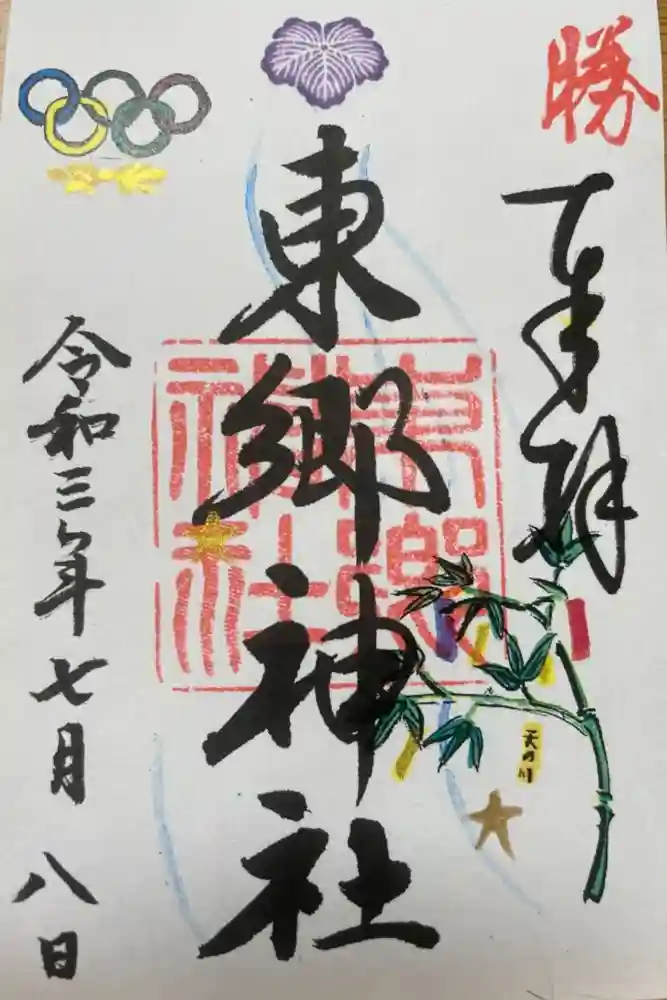 勝
奉拝
東郷神社
東郷神社
天の川
令和三年七月八日